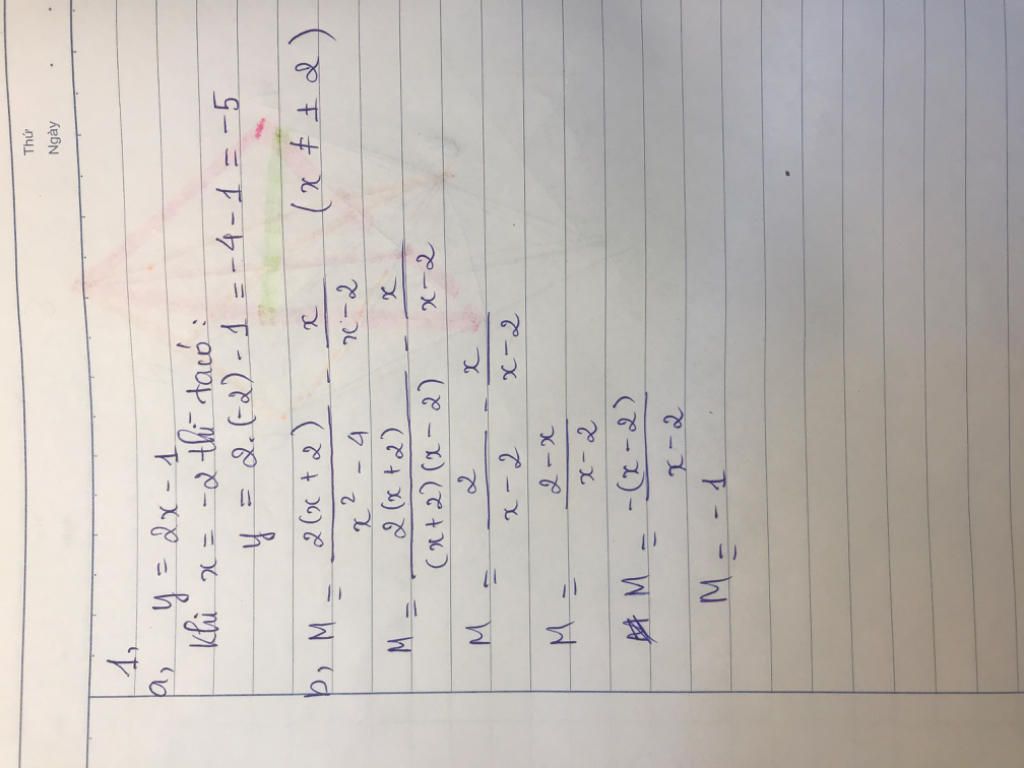 Thứ
Ngày
1,
a, y = 2x - 1
Khi x = -2 thì ta có:
y = 2.(-2) - 1 = -4 - 1 = -5
b, M = 2(x + 2) / x² - 4 - x / x - 2 (x ≠ ± 2)
M = 2(x + 2) / (x + 2)(x - 2) - x / x - 2
M = 2 / x - 2 - x / x - 2
M = 2 - x / x - 2
M = -(x - 2) / x - 2
M = - 1